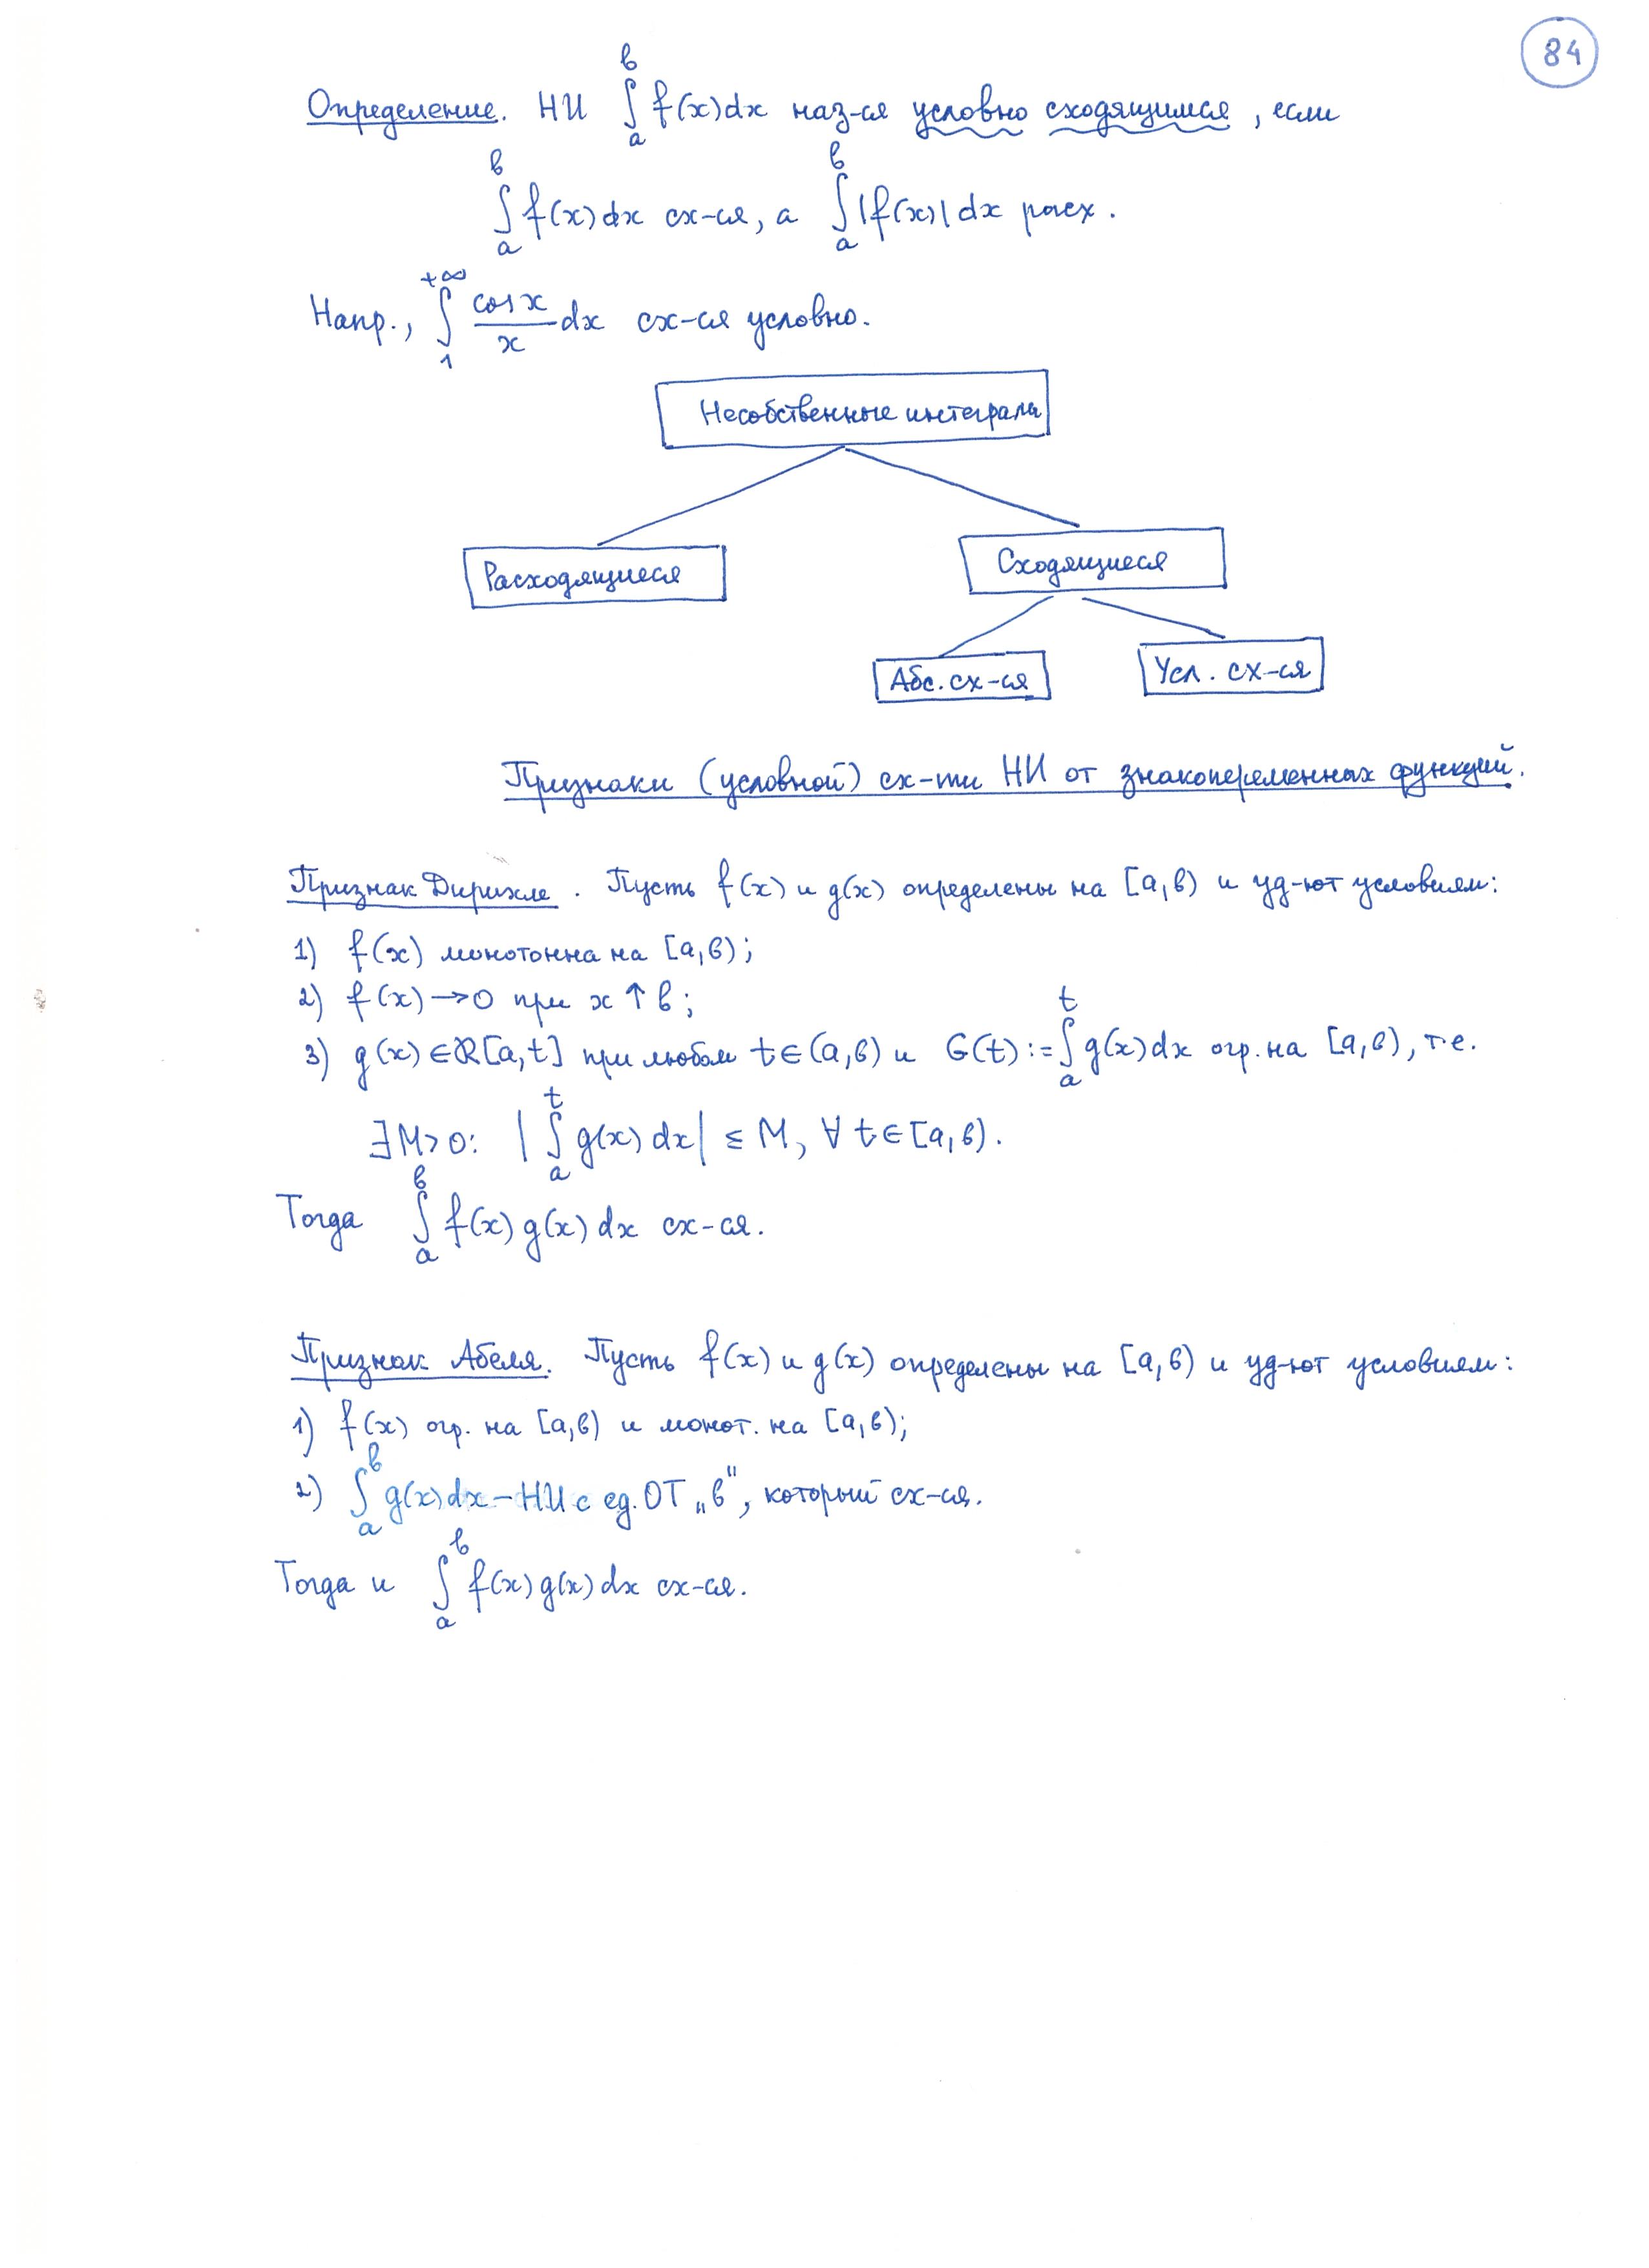 84
Определение. НИ ∫_a^b f(x)dx наз-ся условно сходящимся, если
∫_a^b f(x)dx сх-ся, а ∫_a^b |f(x)|dx расх.
Напр., ∫_1^{+∞} cos x / x dx сх-ся условно.
Несобственные интегралы
Расходящиеся
Сходящиеся
Абс. сх-ся
Усл. сх-ся
Признаки (условной) сх-ти НИ от знакопеременных функций.
Признак Дирихле. Пусть f(x) и g(x) определены на [a,b) и уд-ют условиям:
1) f(x) монотонна на [a,b);
2) f(x)→0 при x↑b;
3) g(x)∈ℛ[a,t] при любом t∈(a,b) и G(t):=∫_a^t g(x)dx огр. на [a,b), т.е.
∃M>0: |∫_a^t g(x)dx| ≤ M, ∀ t∈[a,b).
Тогда ∫_a^b f(x)g(x)dx сх-ся.
Признак Абеля. Пусть f(x) и g(x) определены на [a,b) и уд-ют условиям:
1) f(x) огр. на [a,b) и монот. на [a,b);
2) ∫_a^b g(x)dx – НИ с ед. ОТ „b“, который сх-ся.
Тогда и ∫_a^b f(x)g(x)dx сх-ся.